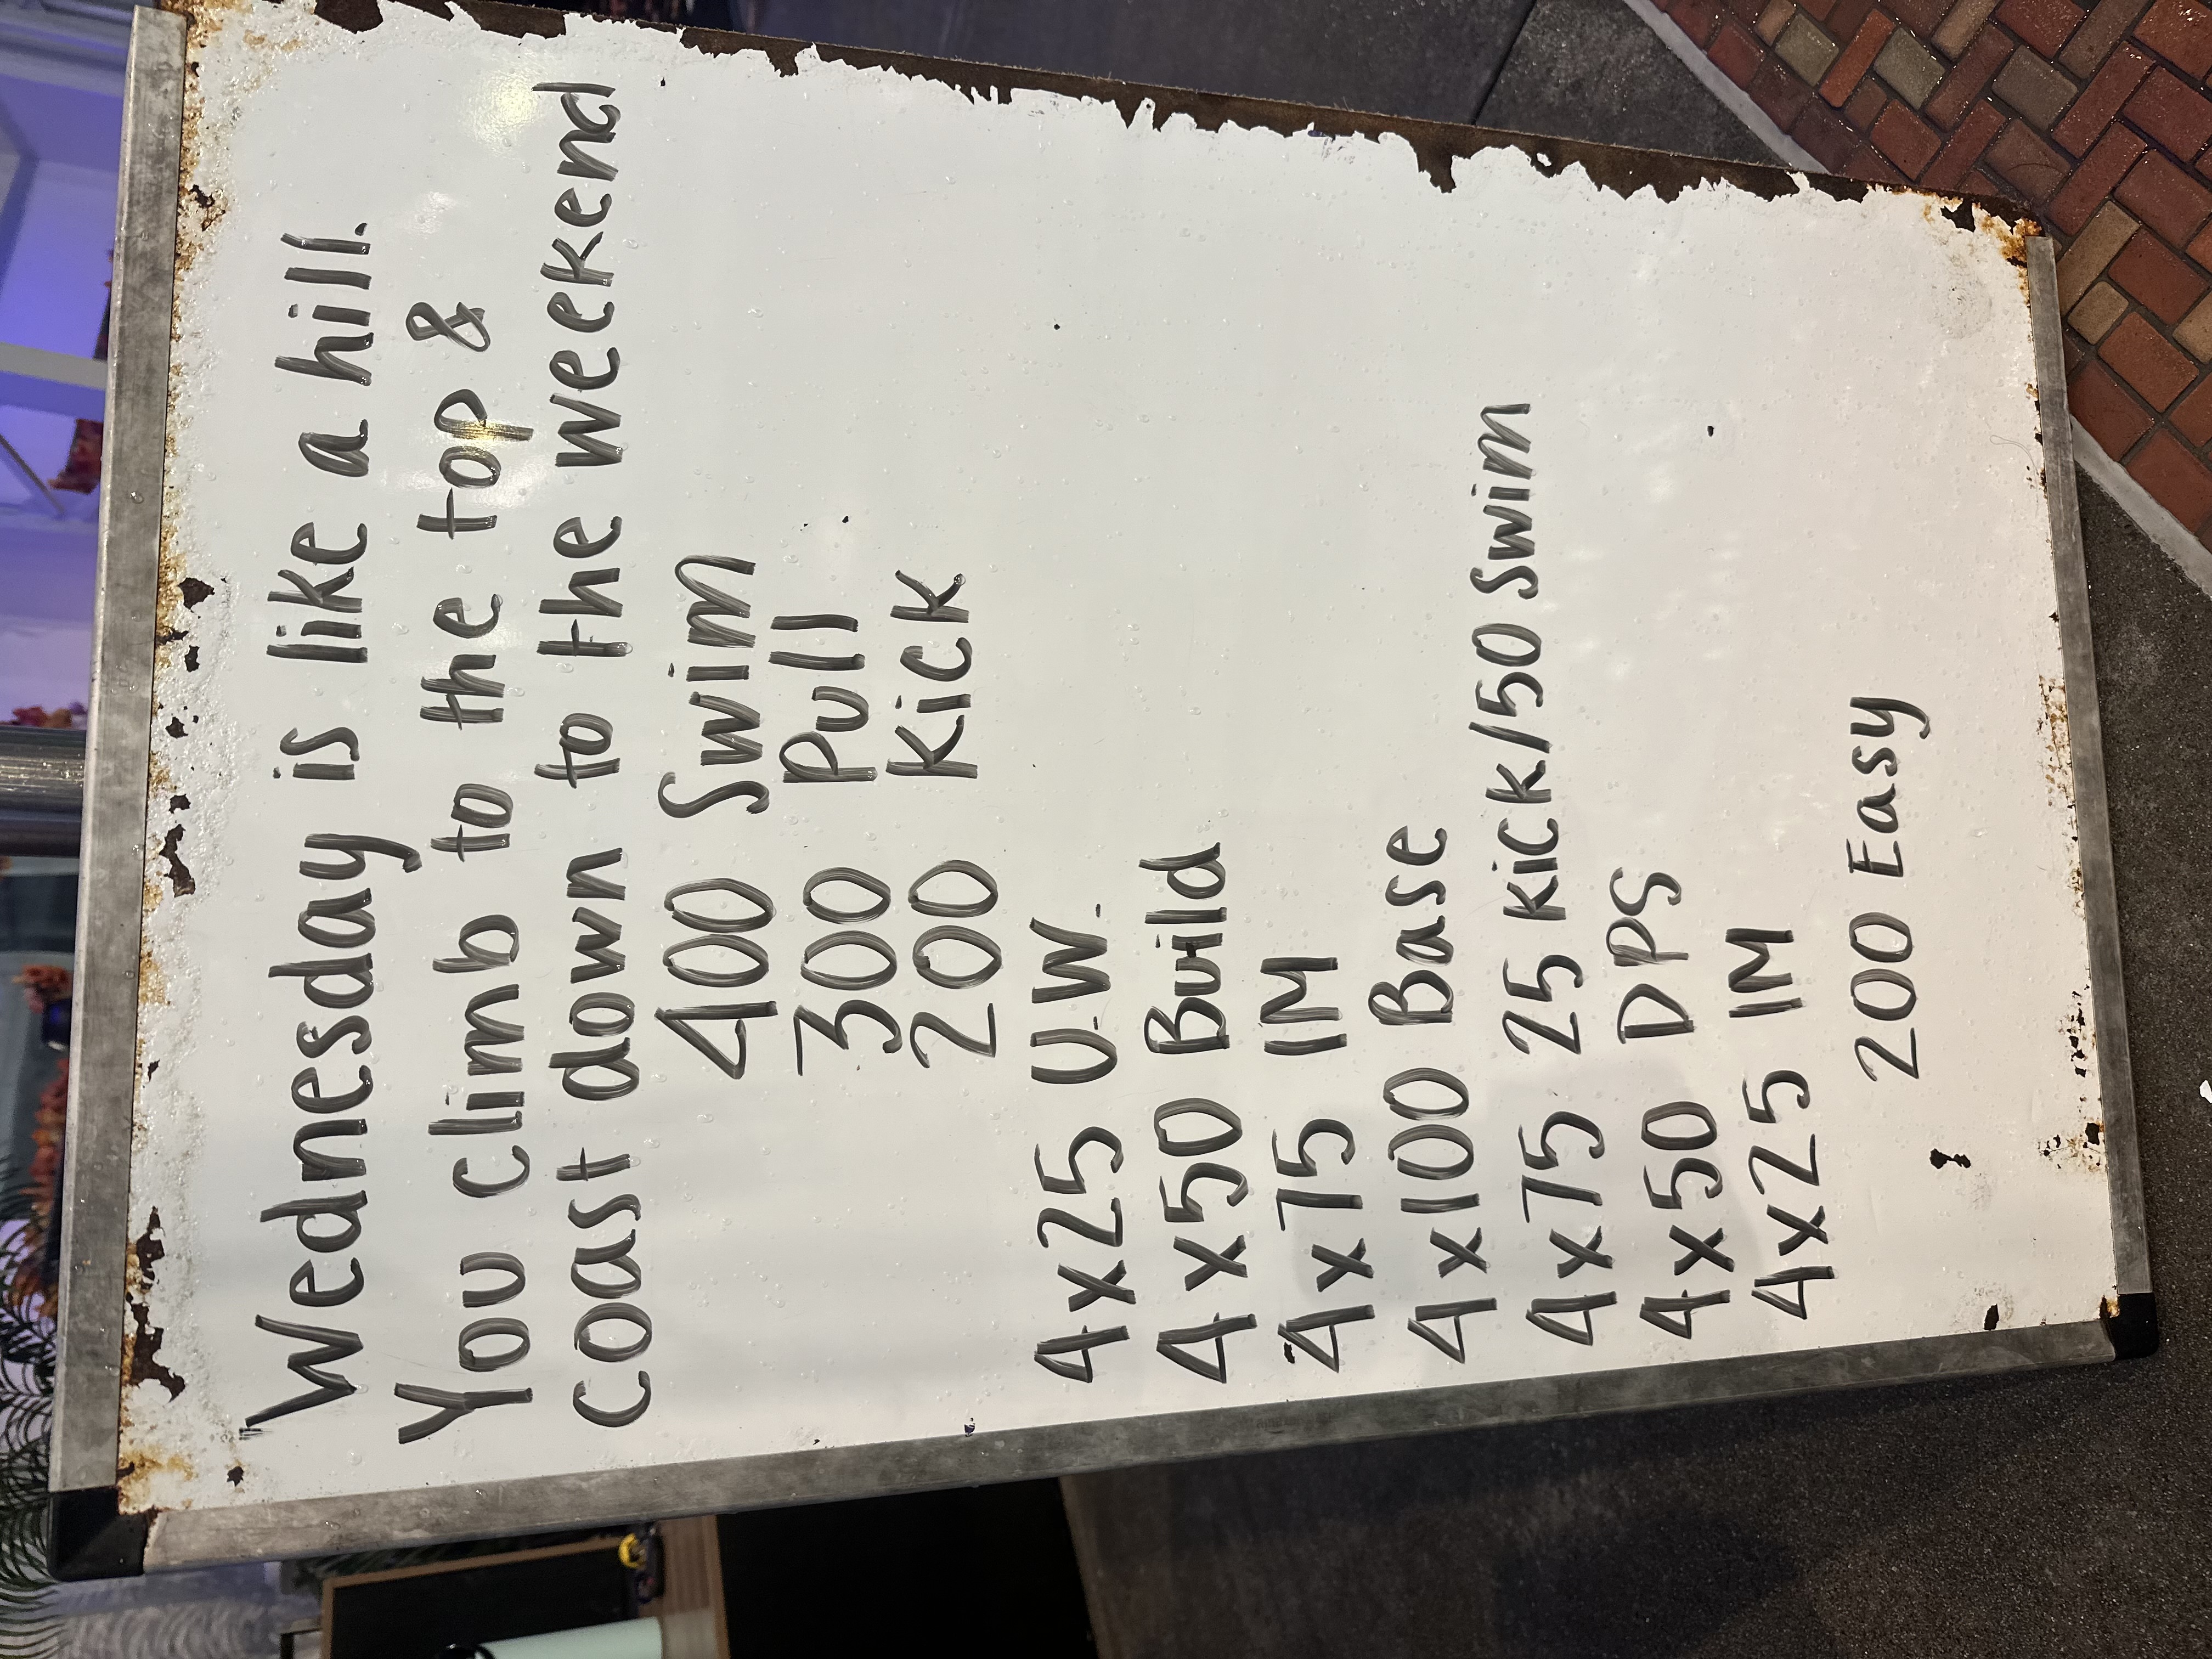 "Wednesday is like a hill.
You climb to the top &
coast down to the weekend
400 Swim
300 Pull
200 Kick
4x25 U.W.
4x50 Build
4x75 IM
4x100 Base
4x75 25 Kick/50 Swim
4x50 DPS
4x25 IM
200 Easy